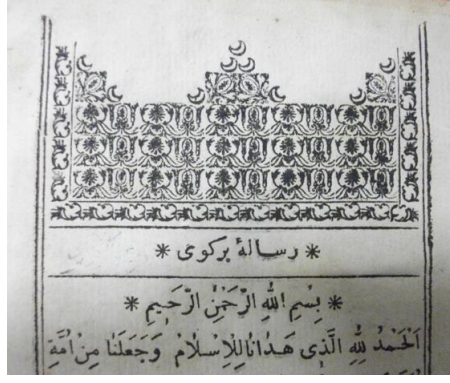 * رسالهٔ بركوى *
* بِسْمِ اللهِ الرَّحْمٰنِ الرَّحِيمِ *
اَلْحَمْدُ لِلهِ الَّذِى هَدٰانَا لِلْاِسْلَامِ وَجَعَلَنَا مِنْ اُمَّةِ